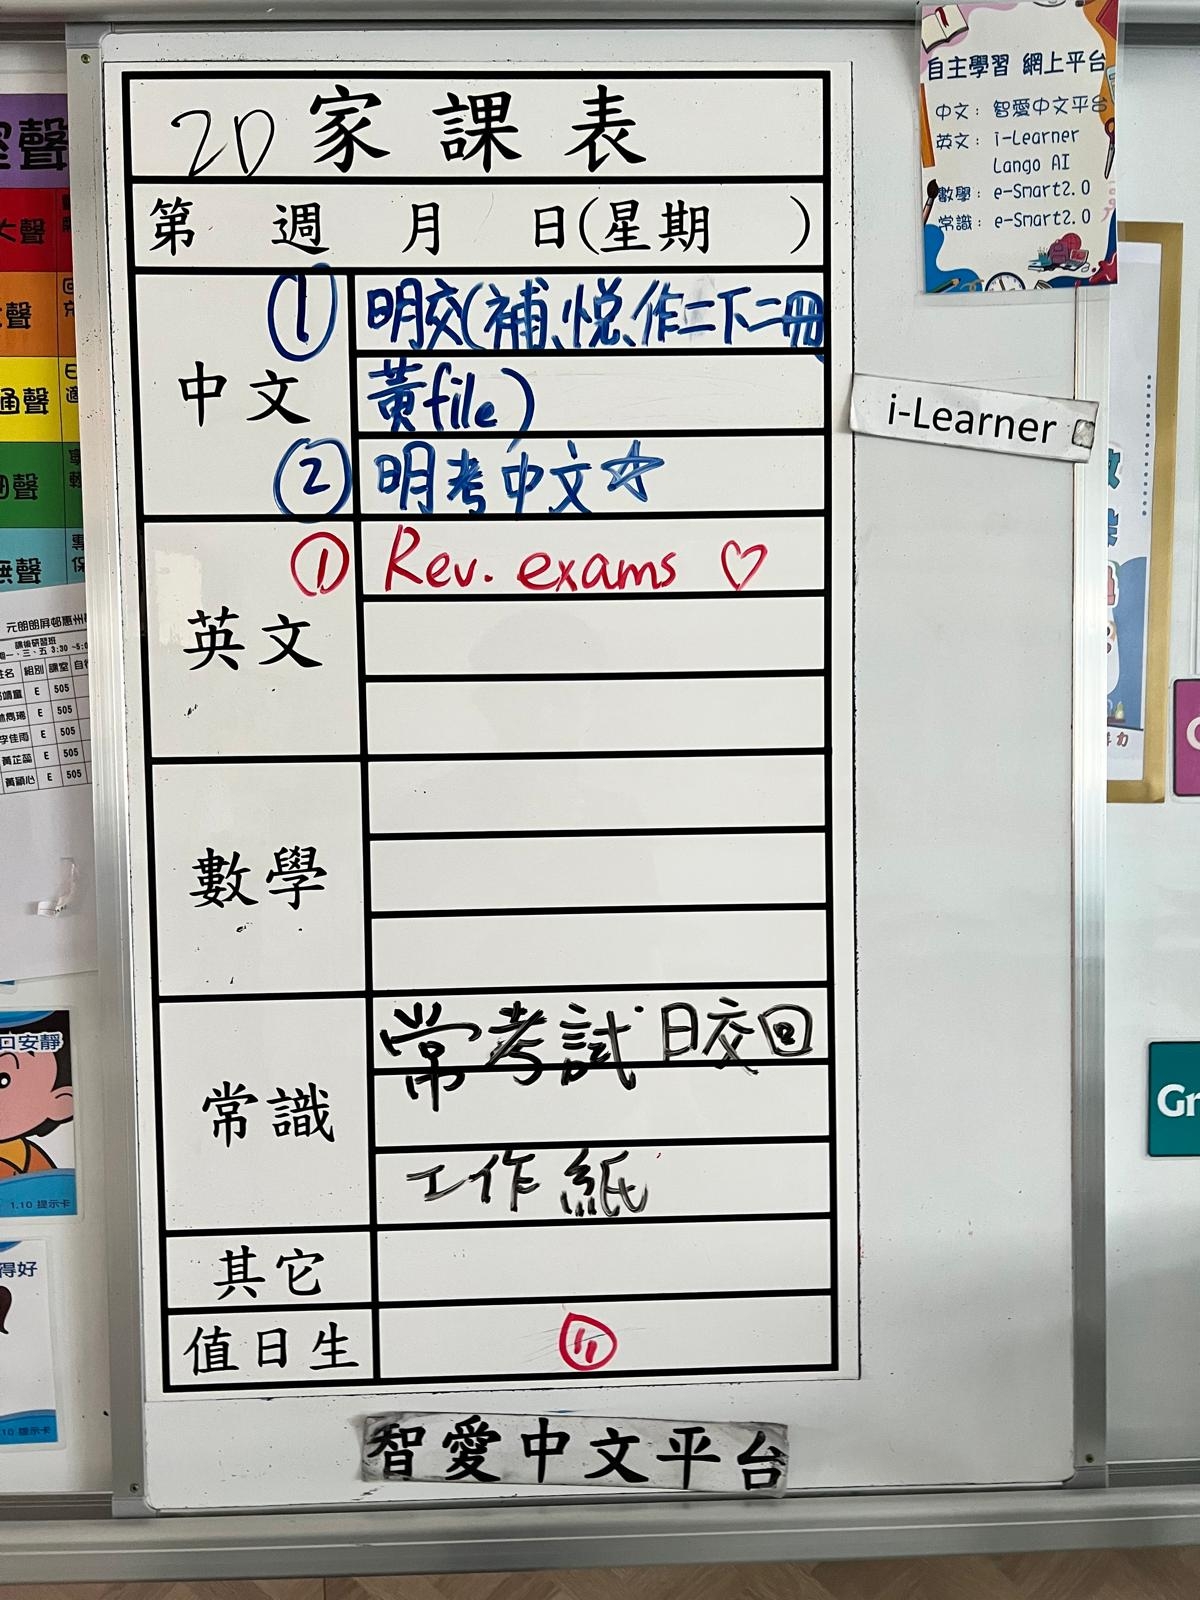 2D 家課表
第 週 月 日(星期 )
中文
① 明交(補、悅、作二下二冊
黃file)
② 明考中文☆
英文
① Rev. exams ♡
數學
常識
常考試日交回
工作紙
其它
值日生
11
智愛中文平台
i-Learner
自主學習 網上平台
中文： 智愛中文平台
英文： i-Learner
Lango AI
數學： e-Smart2.0
常識： e-Smart2.0
大聲
通聲
元朗朗屏邨惠州
課後研習班
一、三、五 3:30 ~5:0
姓名 組別 課室
E 505
E 505
李佳雨 E 505
黃芷蕊 E 505
黃穎心 E 505
回安靜
1.10 提示卡
得好
10 提示卡
Gr